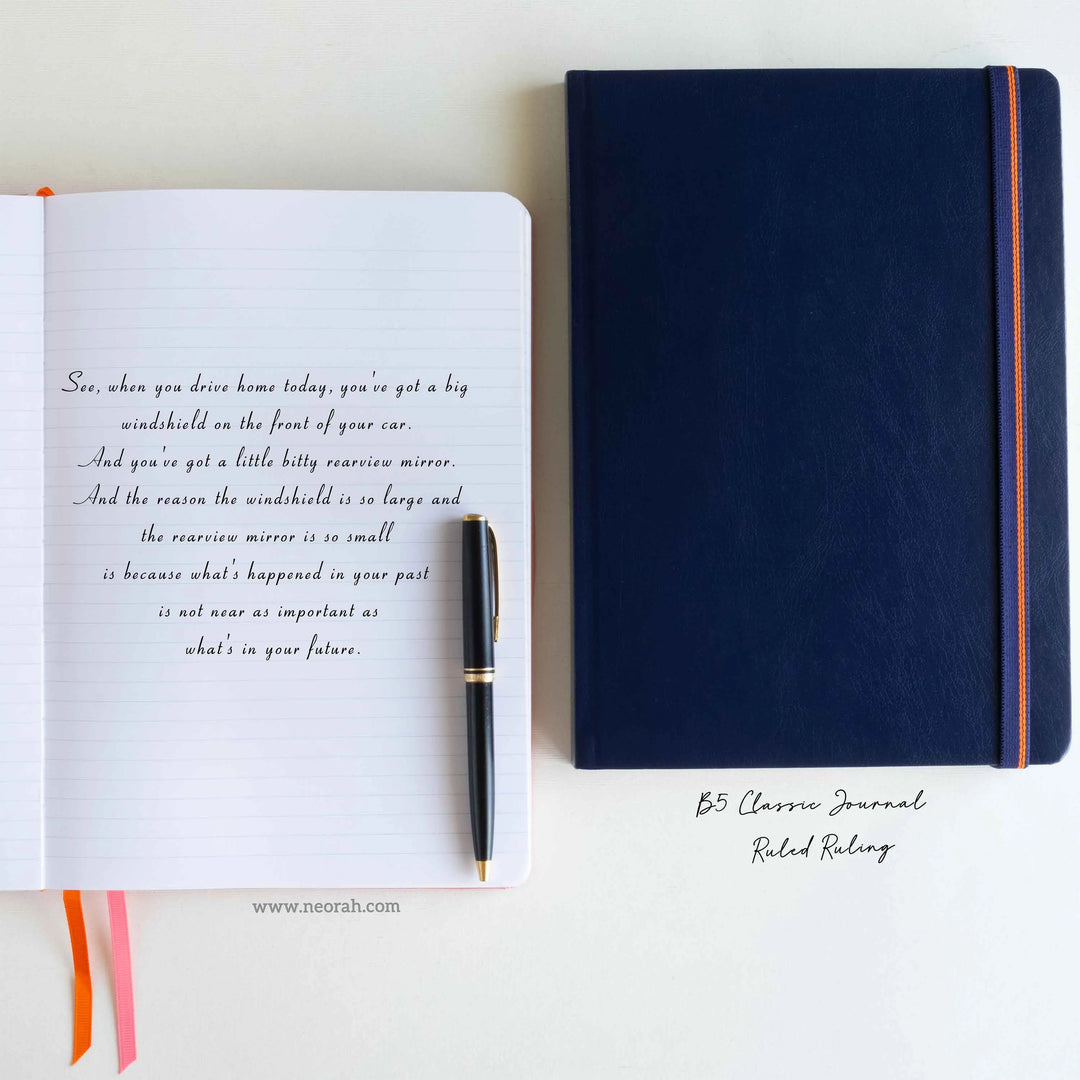 See, when you drive home today, you've got a big
windshield on the front of your car.
And you've got a little bitty rearview mirror.
And the reason the windshield is so large and
the rearview mirror is so small
is because what's happened in your past
is not near as important as
what's in your future.
www.neorah.com
B5 Classic Journal
Ruled Ruling